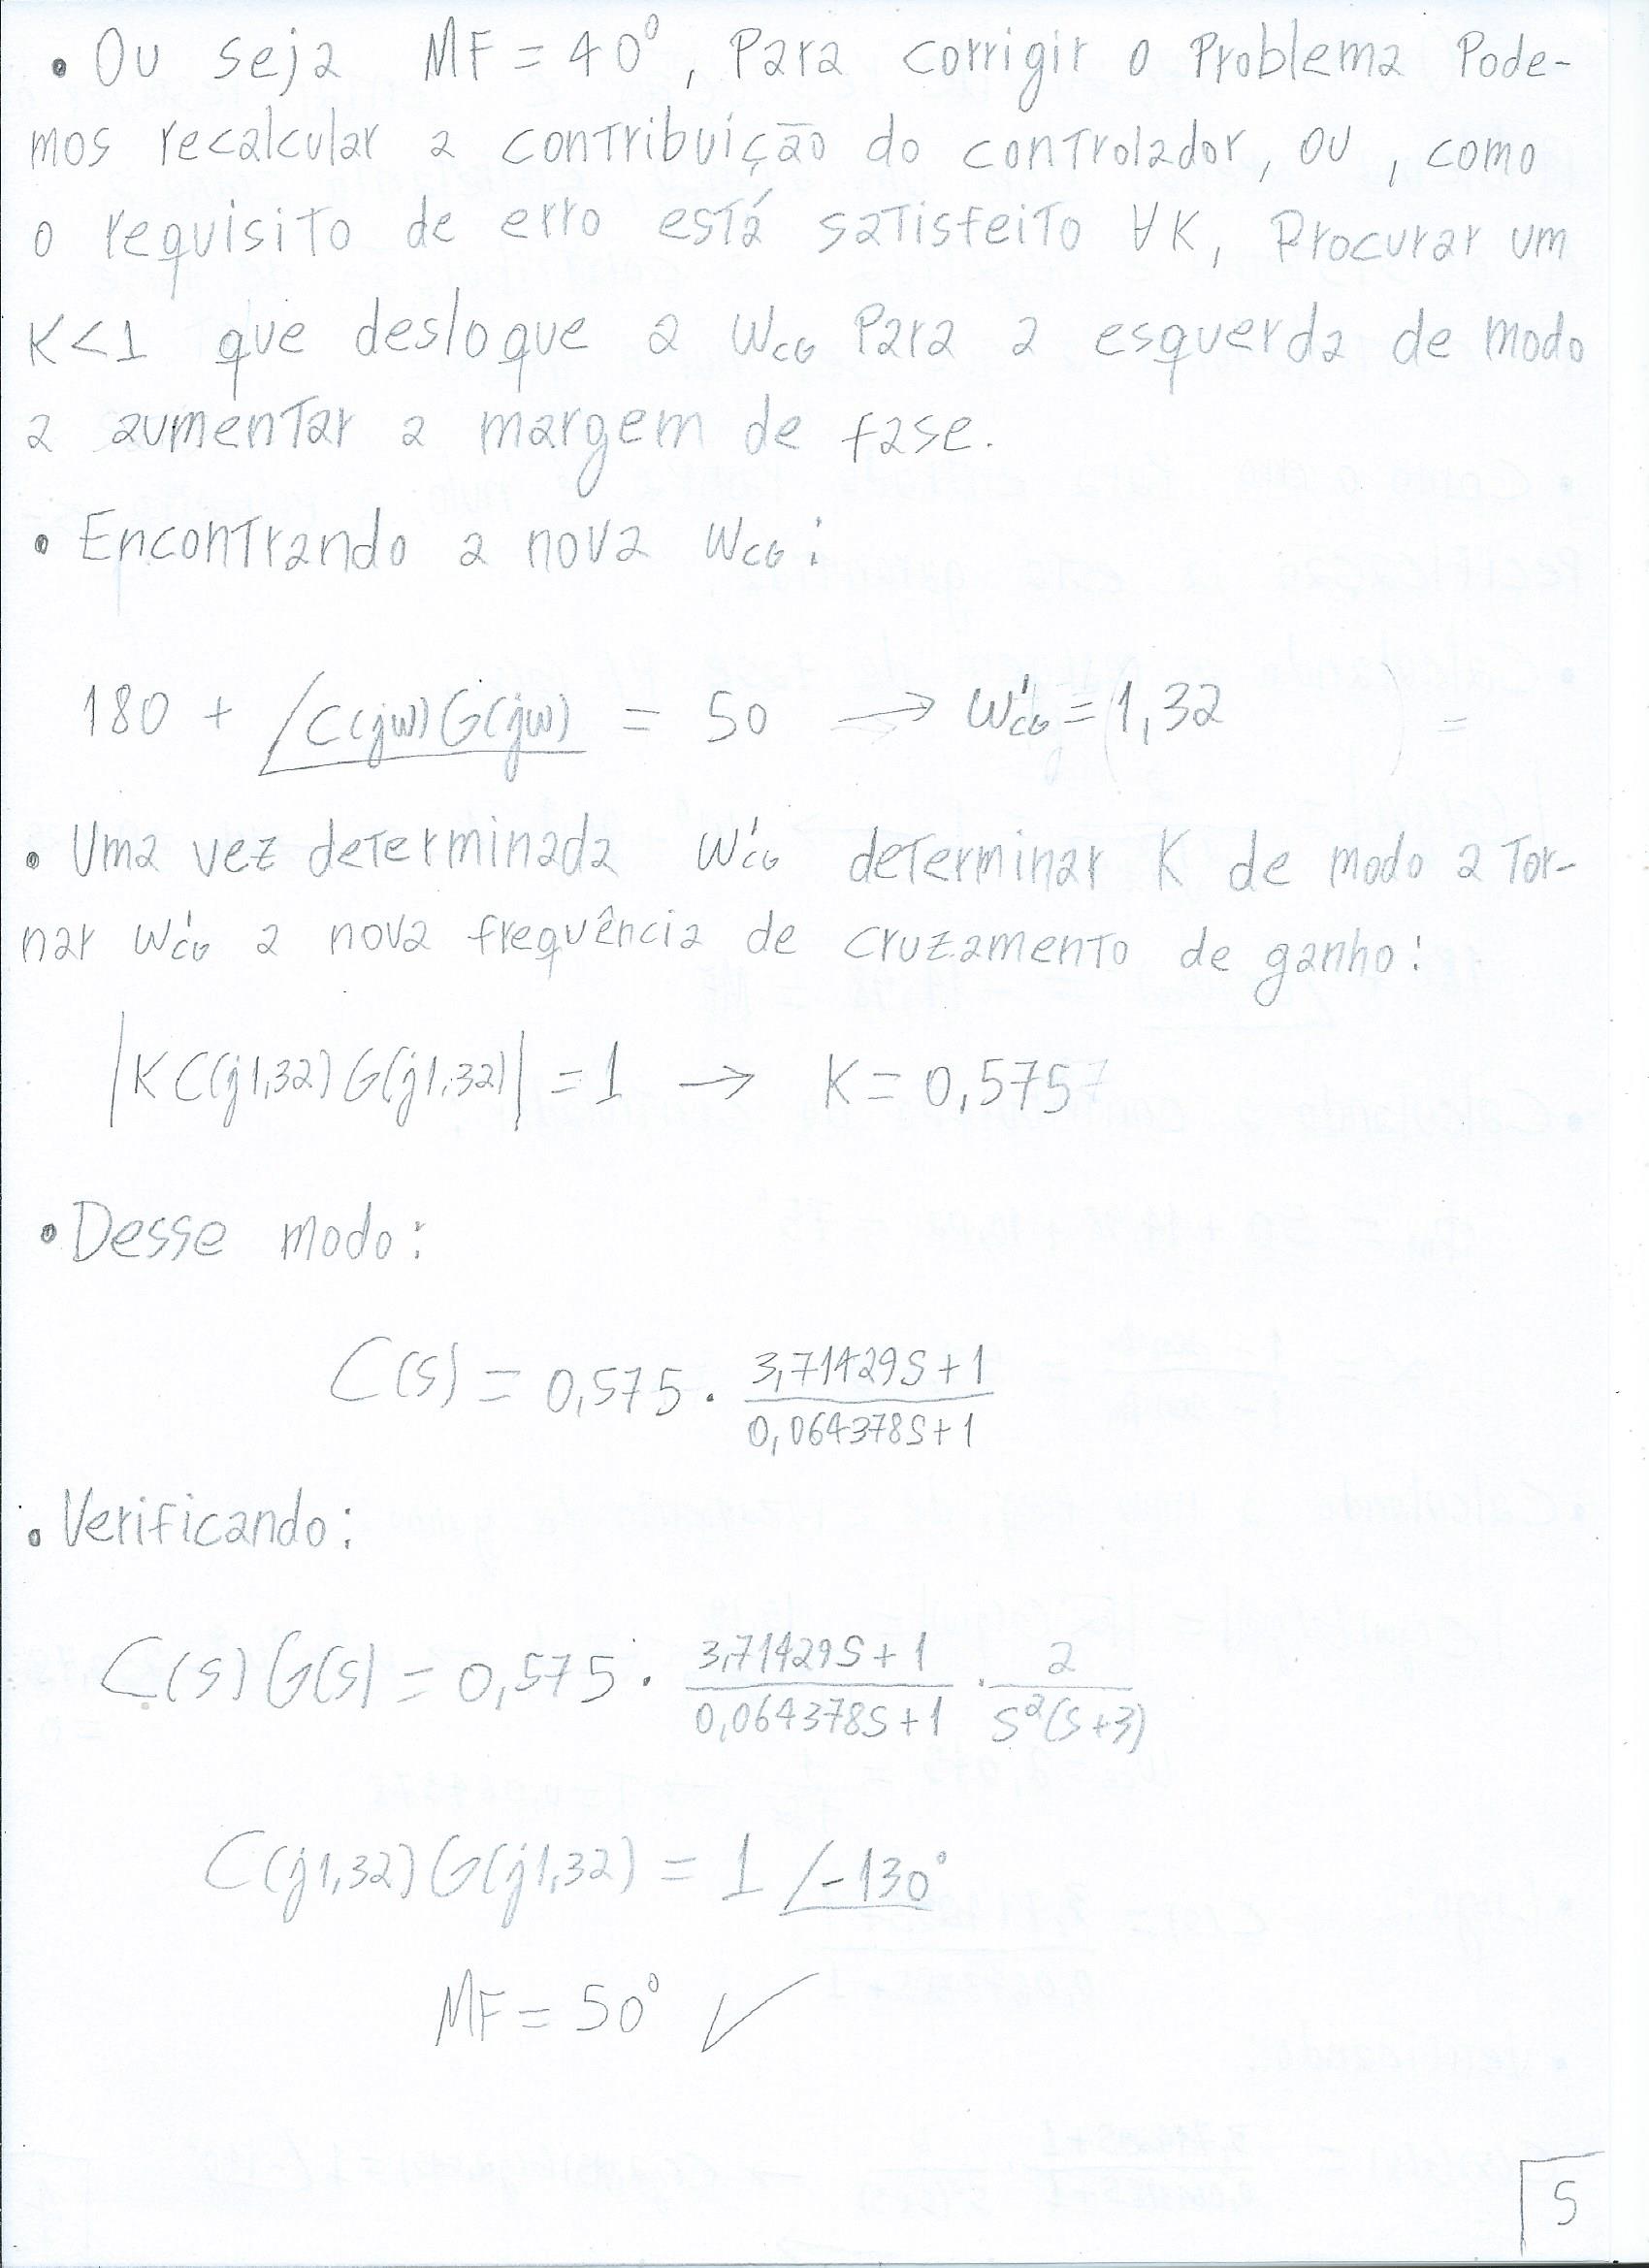 • Ou seja MF = 40°, Para corrigir o Problema Pode-
mos recalcular a contribuição do controlador, ou, como
o requisito de erro está satisfeito ∀K, Procurar um
K<1 que desloque a WCG Para a esquerda de modo
a aumentar a margem de fase.
• Encontrando a nova WCG:
180 + /C(jw)G(jw) = 50 → W'CG = 1,32
• Uma vez determinada W'CG determinar K de modo a Tor-
nar W'CG a nova frequência de cruzamento de ganho:
|K C(j1,32) G(j1,32)| = 1 → K = 0,575
• Desse modo:
C(s) = 0,575 · 3,71429S+1 / 0,064378S+1
• Verificando:
C(s)G(s) = 0,575 · 3,71429S+1 / 0,064378S+1 · 2 / S²(S+3)
C(j1,32)G(j1,32) = 1 /-130°
MF = 50° ✓
5